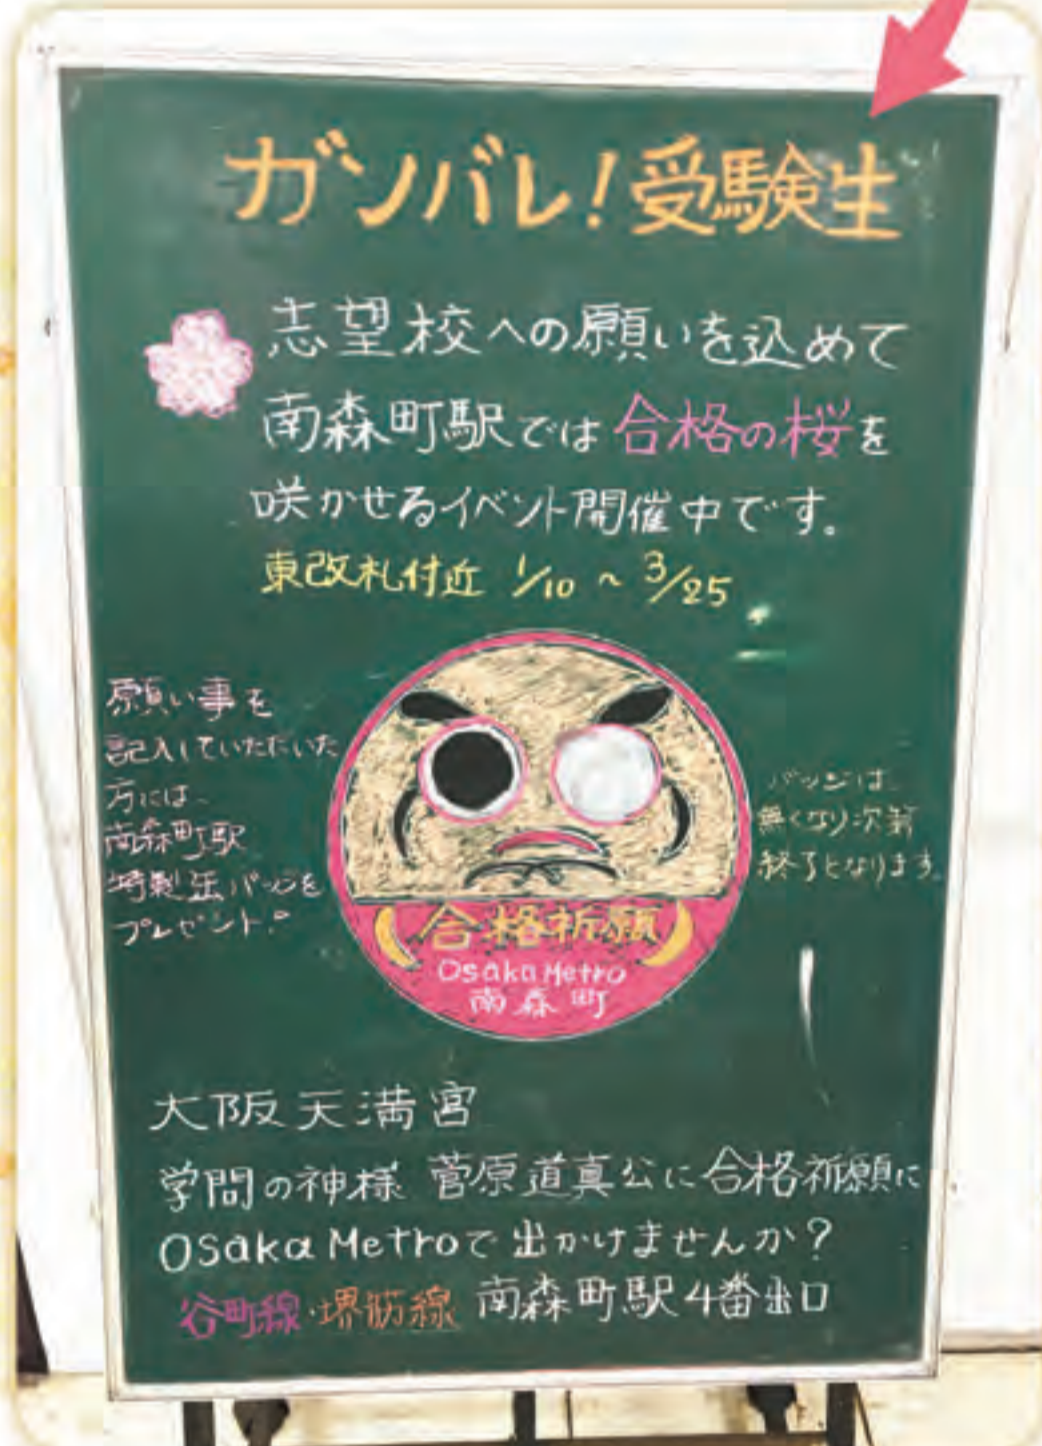 ガンバレ!受験生
志望校への願いを込めて
南森町駅では合格の桜を
咲かせるイベント開催中です。
東改札付近 1/10 ~ 3/25
願い事を
記入していただいた
方には、
南森町駅
特製缶バッジを
プレゼント!
バッジは、
無くなり次第
終了となります。
合格祈願
Osaka Metro
南森町
大阪天満宮
学問の神様 菅原道真公に合格祈願に
Osaka Metroで出かけませんか?
谷町線・堺筋線 南森町駅4番出口